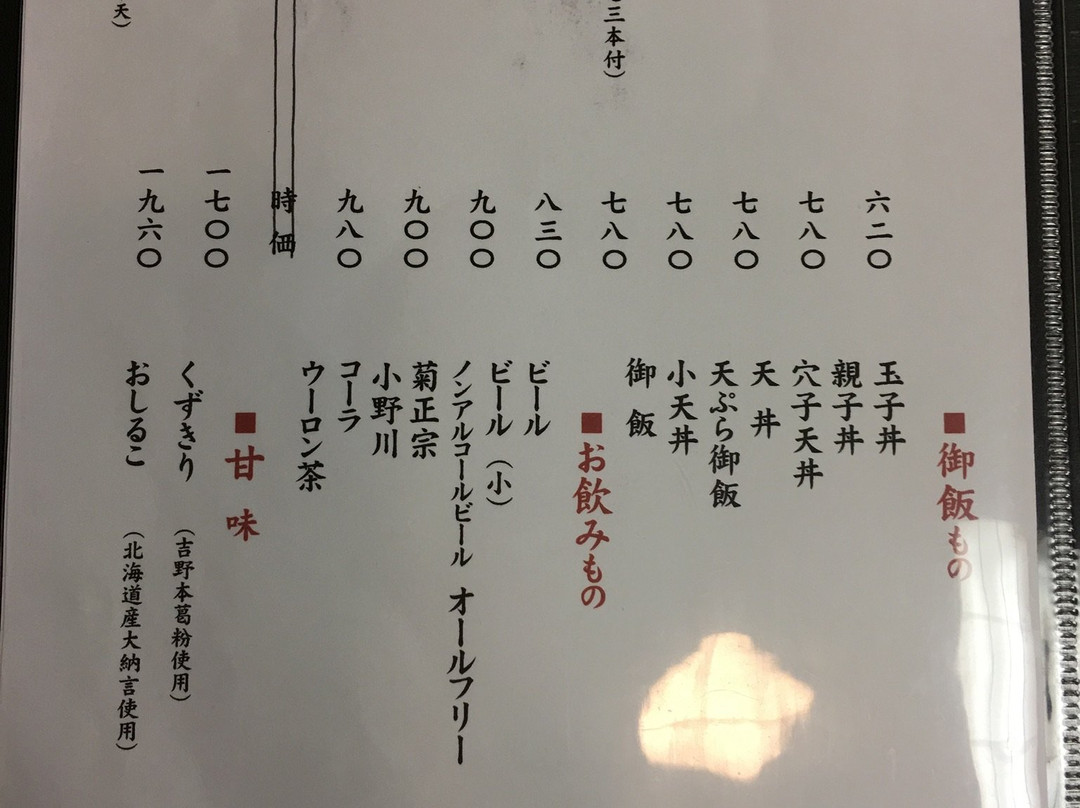 三本付)
天)
六二〇
七八〇
七八〇
七八〇
七八〇
八三〇
九〇〇
九〇〇
九八〇
時価
一七〇〇
一九六〇
■御飯もの
玉子丼
親子丼
穴子天丼
天丼
天ぷら御飯
小天丼
御飯
■お飲みもの
ビール
ビール(小)
ノンアルコールビール オールフリー
菊正宗
小野川
コーラ
ウーロン茶
■甘味
くずきり (吉野本葛粉使用)
おしるこ (北海道産大納言使用)